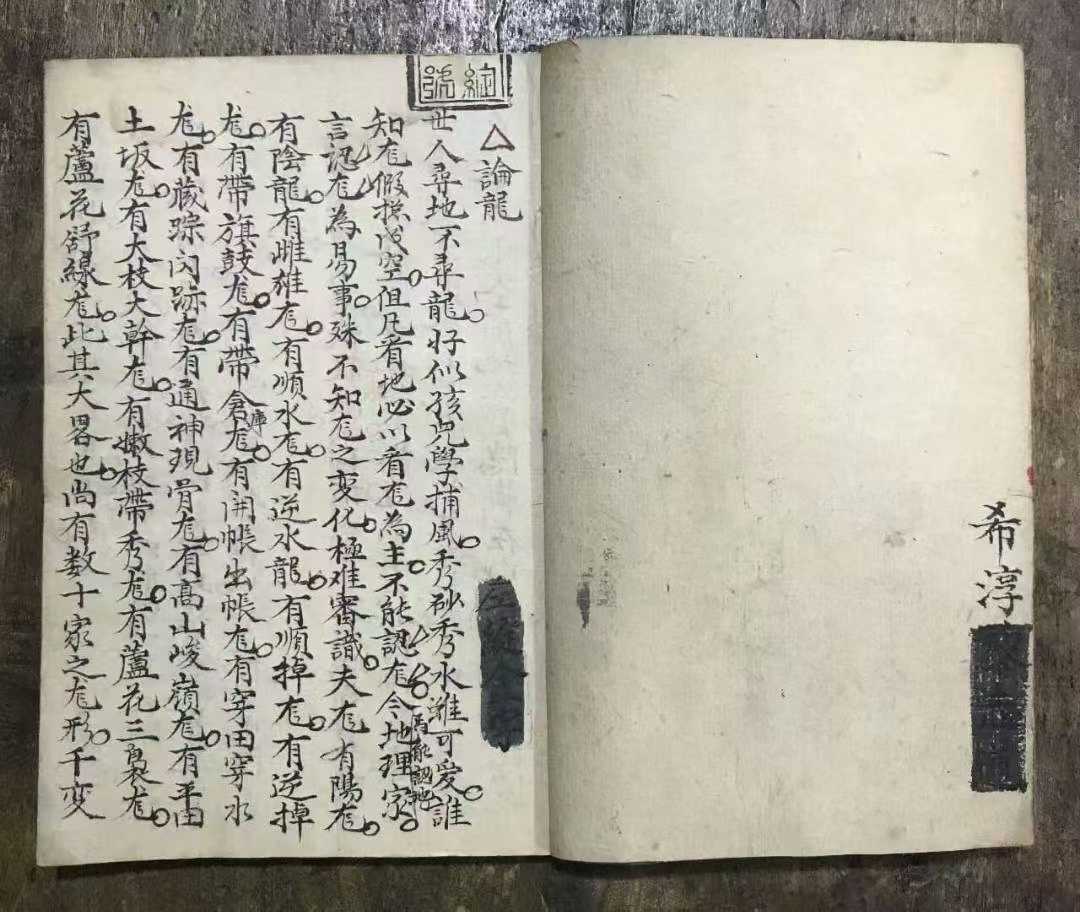 希淳
△論龍
世人尋地不尋龍。好似孩兒學捕風。秀砂秀水雖可愛。誰
知龙假捴成空。但凡看地必以看龙為主。不能認龙焉能認地。今地理家。
言認龙為易事。殊不知龙之变化。極难審識。夫龙有陽龙。
有陰龍。有雌雄龙。有順水龙。有逆水龍。有順掉龙。有逆掉
龙。有帶旗鼓龙。有帶倉庫龙。有開帳出帳龙。有穿田穿水
龙。有藏踪闪跡龙。有通神現骨龙。有高山峻嶺龙。有平田
土坂龙。有大枝大幹龙。有嫩枝帶秀龙。有蘆花三裊龙。
有蘆花舒線龙。此其大畧也。尚有数十家之龙形。千变